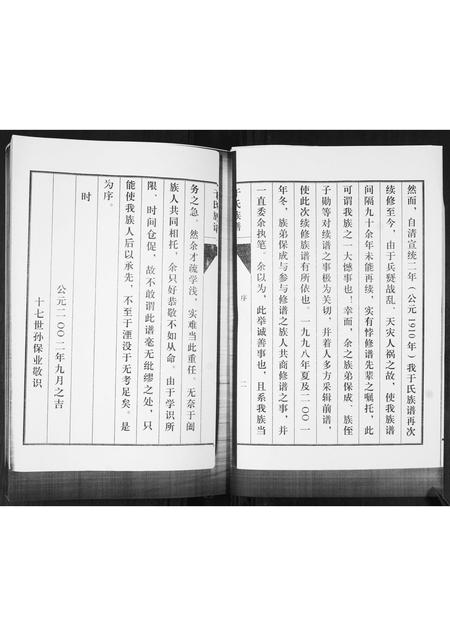 然而，自清宣统二年（公元1910年）我于氏族谱再次
续修至今，由于兵燹战乱、天灾人祸之故，使我族谱
间隔九十余年未能再续，实有悖修谱先辈之嘱托，此
可谓我族之一大憾事也！幸而，余之族弟保成、族侄
子勋等对续谱之事极为关切，并着人多方采辑前谱，
使此次续修族谱有所依也。一九九八年夏及二〇〇一
年冬，族弟保成与参与修谱之族人共商修谱之事，并
一直委余执笔。余以为，此举诚善事也，且系我族当
于氏族谱
序
二
于氏族谱
务之急。然余才疏学浅，实难当此重任。无奈于阖
族人共同相托，余只好恭敬不如从命。由于学识所
限，时间仓促，故不敢谓此谱毫无纰缪之处，只
能使我族人后以承先，不至于湮没于无考足矣。是
为序。
时
公元二〇〇二年九月之吉
十七世孙保业敬识